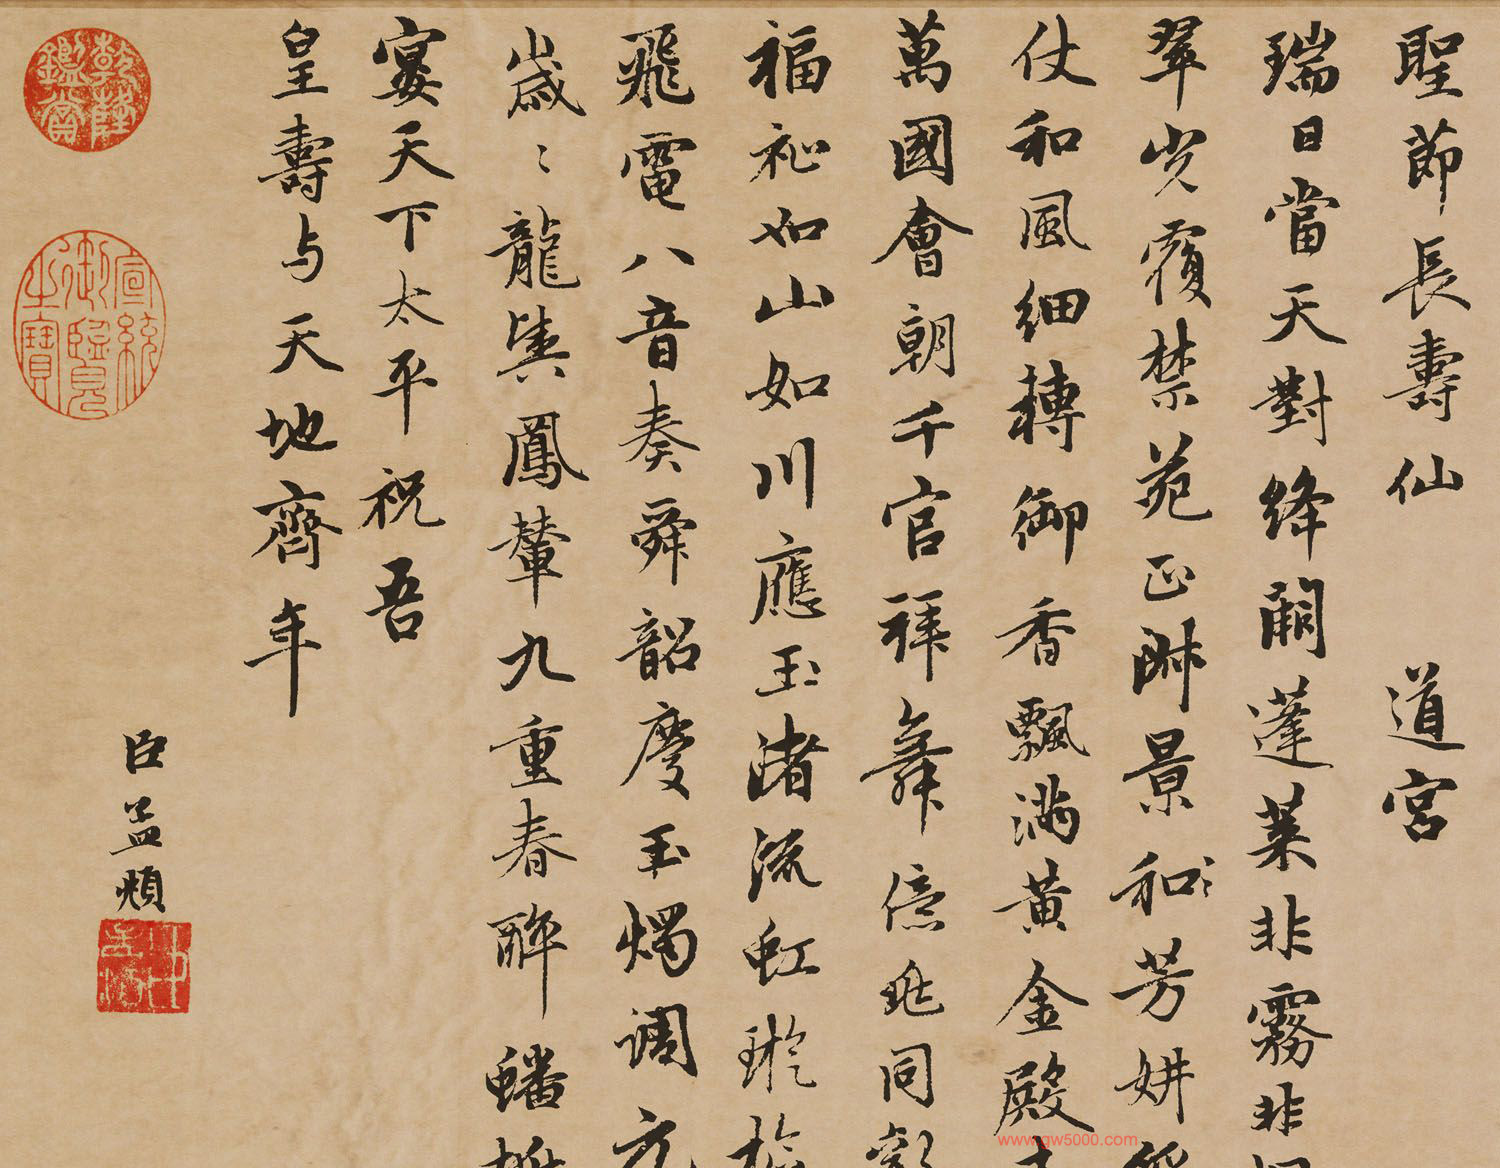 聖節長壽仙 道宮
瑞日當天對絳闕蓬萊非霧非
翠光覆禁苑正淑景和芳妍
仗和風細轉御香飄滿黃金殿
萬國會朝千官拜舞億兆同歡
福祉如山如川應玉渚流虹璇樞
飛電八音奏舜韶慶玉燭調元
歲〻龍輿鳳輦九重春醉蟠桃
宴天下太平祝吾
皇壽与天地齊年
臣孟頫
乾隆鑑賞
宣統御覽之寶
www.gw5000.com